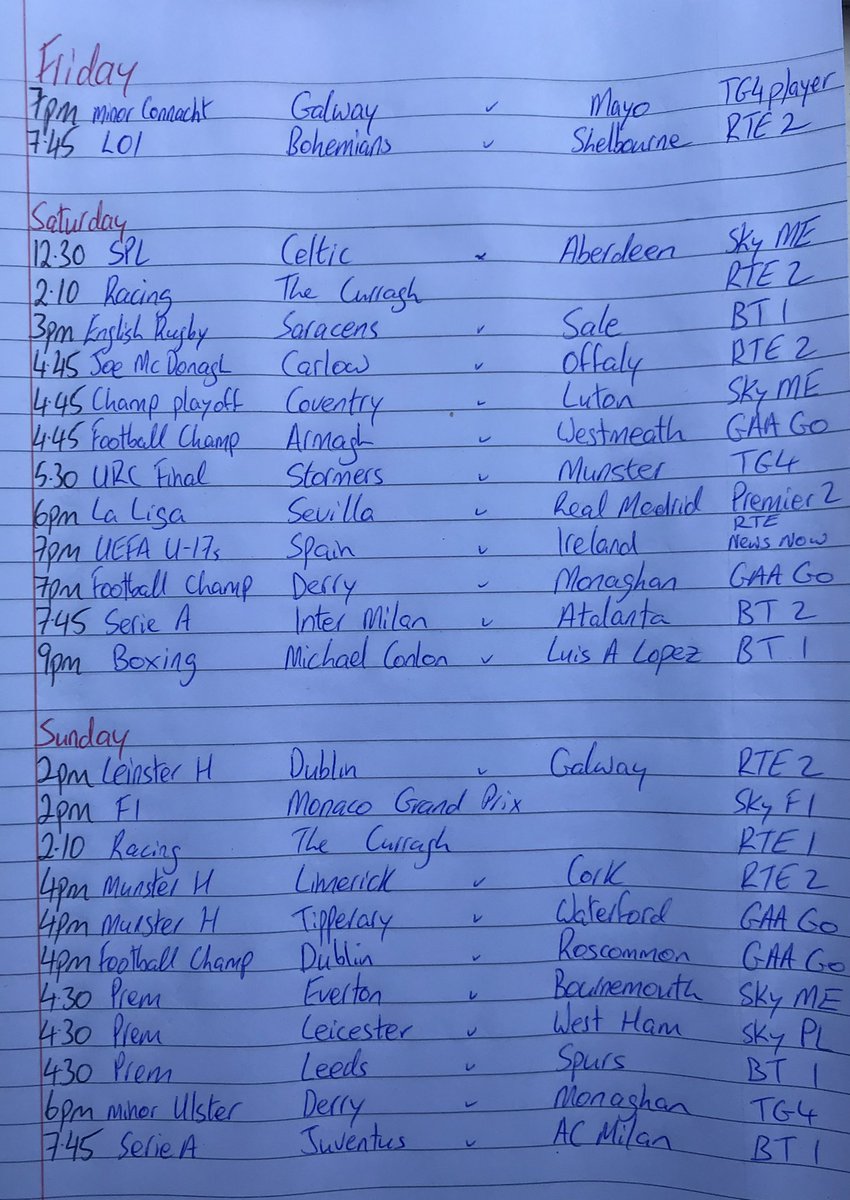 Friday
7pm Minor Connacht Galway v Mayo TG4 player
7.45 LOI Bohemians v Shelbourne RTE 2
Saturday
12.30 SPL Celtic v Aberdeen Sky ME
2.10 Racing The Curragh RTE 2
3pm English Rugby Saracens v Sale BT 1
4.45 Joe McDonagh Carlow v Offaly RTE 2
4.45 Champ playoff Coventry v Luton Sky ME
4.45 Football Champ Armagh v Westmeath GAA GO
5.30 URC Final Stormers v Munster TG4
6pm La Liga Sevilla v Real Madrid Premier 2
7pm UEFA U-17s Spain v Ireland RTE News Now
7pm Football Champ Derry v Monaghan GAA GO
7.45 Serie A Inter Milan v Atalanta BT 2
9pm Boxing Michael Conlon v Luis A Lopez BT 1
Sunday
2pm Leinster H Dublin v Galway RTE 2
2pm F1 Monaco Grand Prix Sky F1
2.10 Racing The Curragh RTE 1
4pm Munster H Limerick v Cork RTE 2
4pm Munster H Tipperary v Waterford GAA GO
4pm Football Champ Dublin v Roscommon GAA GO
4.30 Prem Everton v Bournemouth Sky ME
4.30 Prem Leicester v West Ham Sky PL
4.30 Prem Leeds v Spurs BT 1
6pm Minor Ulster Derry v Monaghan TG4
7.45 Serie A Juventus v AC Milan BT 1